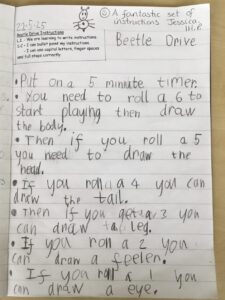 22.5.25
Beetle Drive Instructions
L.I - We are learning to write instructions.
S.C - I can bullet point my instructions
I can use capital letters, finger spaces
and full stops correctly.
A fantastic set of
instructions Jessica
Beetle Drive
• Put on a 5 minute timer.
• You need to roll a 6 to
start playing then draw
the body.
• Then if you roll a 5
you need to draw the
head.
• If you roll a 4 you can
draw the tail.
• Then if you get a 3 you
can draw a leg.
• If you roll a 2 you
can draw a feeler.
• If you roll a 1 you
can draw a eye.